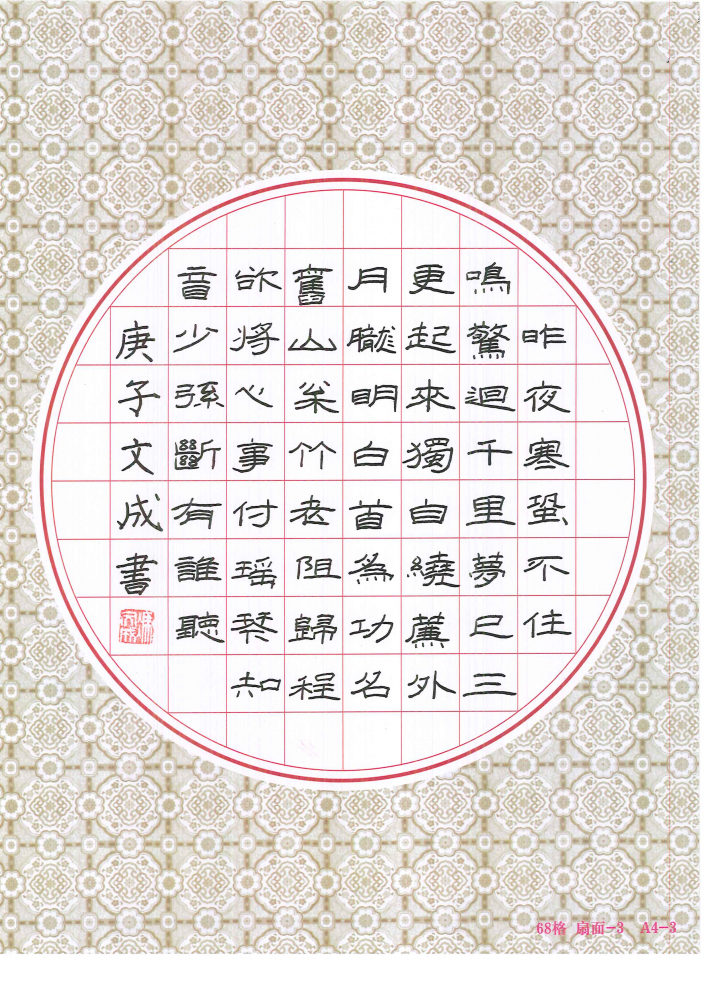 昨夜寒蛩不住
鳴驚迴千里夢已三
更起來獨自繞簾外
月朧明白首為功名
舊山松竹老阻歸程
欲將心事付瑤琴知
音少弦斷有誰聽
庚子文成書
68格 扇面-3 A4-3